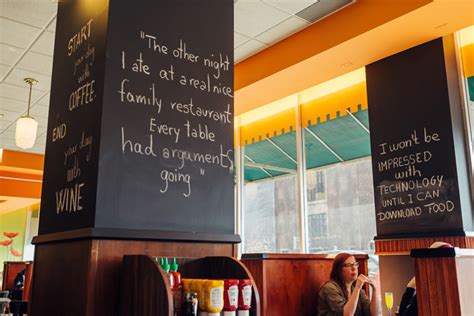 START
your day
with
COFFEE.
END
your day
with
WINE
"The other night
I ate at a real nice
family restaurant
Every table
had arguments
going"
I won't be
IMPRESSED
with
TECHNOLOGY
UNTIL I CAN
DOWNLOAD FOOD